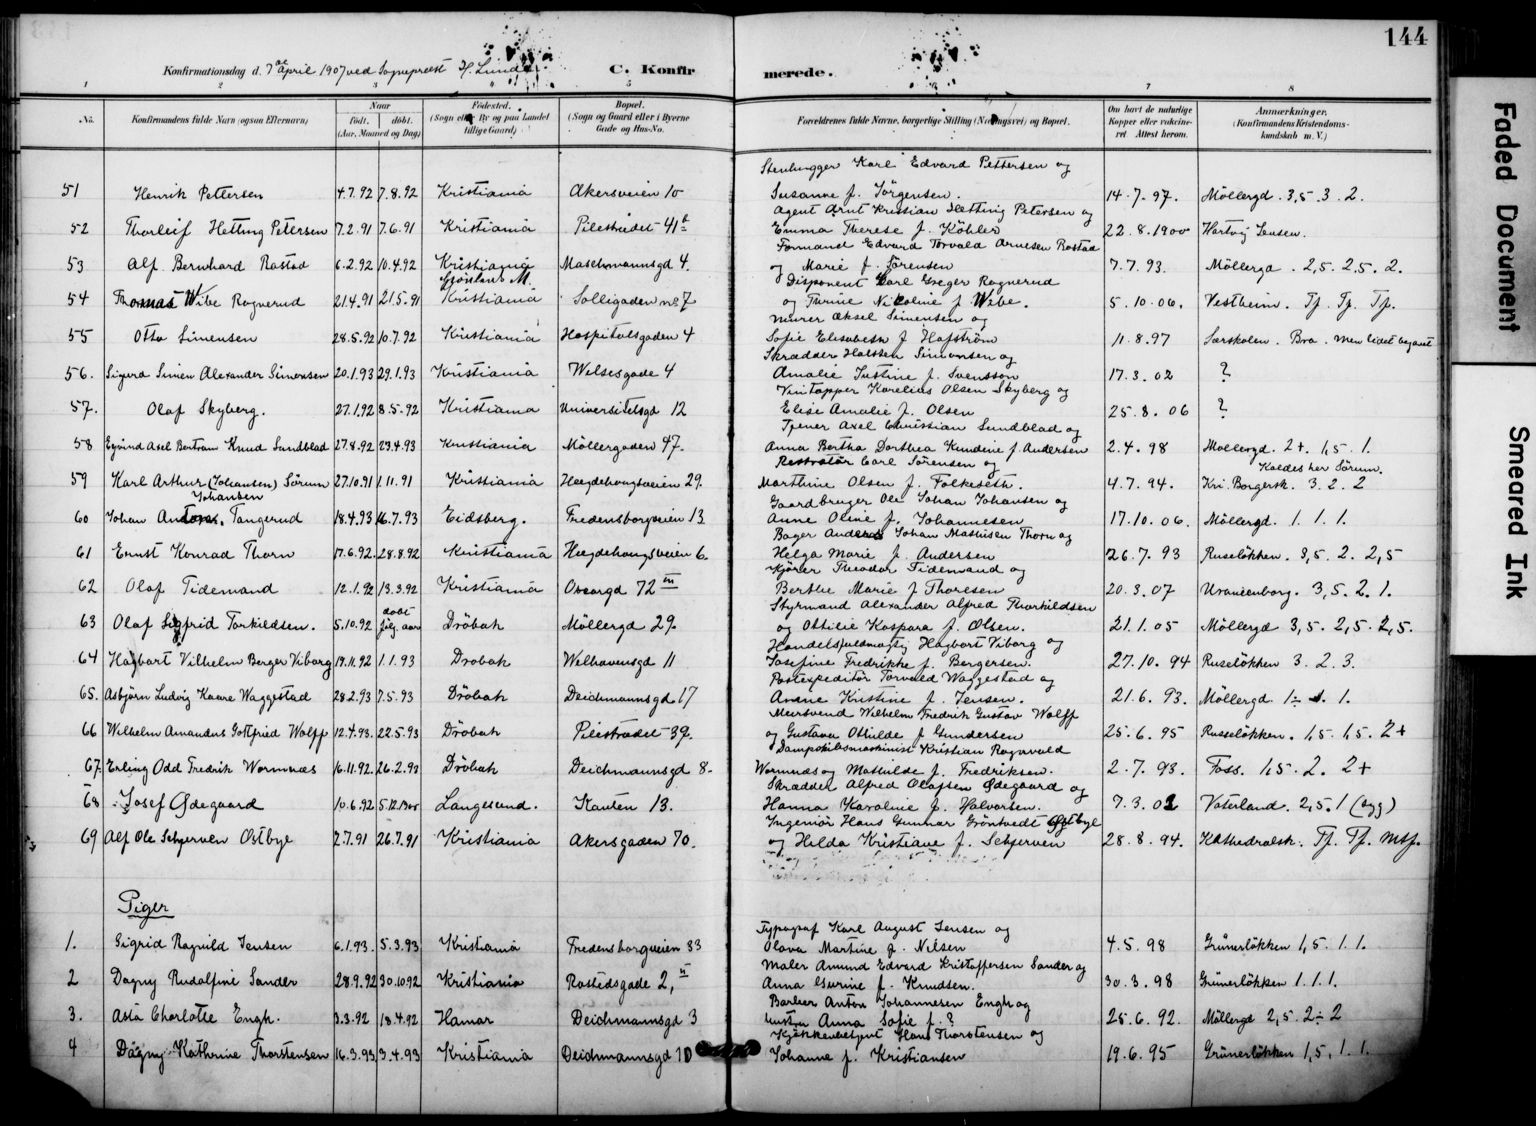 144
Konfirmationsdag d. 7de April 1907 ved Sognepræst H. Lunde.
C. Konfir
merede.
1 2 3 4 5 6 7 8
No. Konfirmandens fulde Navn (ogsaa Efternavn) Naar født. døbt. (Aar, Maaned og Dag) Fødested. (Sogn eller By og paa Landet tillige Gaard) Bopæl. (Sogn og Gaard eller i Byerne Gade og Hus-No. Forældrenes fulde Navne, borgerlige Stilling (Næringsvei) og Bopæl. Om havt de naturlige Kopper eller vakcineret Attest herom. Anmærkninger. (Konfirmandens Kristendomskundskab m. V.)
Stenhugger Karl Edvard Pettersen og
51 Henrik Pettersen 4.7.92 7.8.92 Kristiania Akersveien 10 Susanne f. Jörgensen. 14.7.97. Möllergd. 3,5. 3. 2.
Agent Arnt Kristian Hetting Petersen og
52 Thorleif Hetting Petersen 7.2.91 7.6.91 Kristiania Pilestrædet 41 b Emma Therese f. Köhler 22.8.1900 Hartvig Jensen.
Formand Edvard Torvald Arnesen Rostad
53 Alf Bernhard Rostad 6.2.92 10.4.92 Kristiania Maschmannsgd 4. og Marie f. Sörensen 7.7.93. Möllergd. 2,5. 2,5. 2.
Grönlands M. Disponent Carl Greger Rognerud
54 Thomas Wibe Rognerud 21.4.91 21.5.91 Kristiania Solligaden no 7 og Thrine Nicoline f. Wibe. 5.10.06. Vestheim. Tf. Tf. Tf.
Murer Aksel Simensen og
55 Otto Simensen 28.5.92 10.7.92 Kristiania Hospitalsgaden 4 Sofie Elisabeth f. Hofström 11.8.97 Særskolen. Bra. men lidet begavet
Skrædder Halsten Simonsen og
56. Sigurd Simen Alexander Simonsen 20.1.93 29.1.93 Kristiania Welsesgade 4 Amalie Justine f. Svensson 17.3.02 ?
Vintapper Karelius Olsen Skyberg og
57. Olaf Skyberg. 27.1.92 8.5.92 Kristiania Universitetsgd 12 Elise Amalie f. Olsen 25.8.06 ?
Tjener Axel Christian Sundblad og
58 Eyvind Axel Bertram Knud Sundblad 27.8.92 23.4.93 Kristiania Möllergaden 47. Anna Bertha Dorthea Kundine f. Andersen 2.4.98 Möllergd. 2+. 1,5. 1.
Restratör Carl Sörensen og Kaldes her Sörum.
59 Karl Arthur (Johansen) Sörum 27.10.91 1.11.91 Kristiania Hægdehaugsveien 29. Marthine Olsen f. Folkeseth. 4.7.94. Kri. Borgersk. 3. 2. 2
Johansen Gaardbruger Ole Johan Johansen og
60 Johan Anton. Tangerud 18.4.93 16.7.93 Eidsberg. Fredensborgveien 13 Anne Oline f. Johannesen 17.10.06. Möllergd. 1. 1. 1.
Bager Anders Johan Mathisen Thorn og
61 Ernst Konrad Thorn 17.6.92. 28.8.92 Kristiania Hægdehaugsveien 6. Helga Marie f. Andersen 26.7.93 Ruselökken. 3,5. 2. 2,5
Kjörer Theodor Tidemand og
62 Olaf Tidemand 12.1.92 13.3.92 Kristiania Oscarsgd 72 III Berthe Marie f. Thoresen 20.3.07 Uranienborg. 3,5. 2. 1.
döbt Styrmand Alexander Alfred Thorkildsen
63 Olaf Sigfrid Torkildsen. 5.10.92 Dröbak Möllergd 29. og Othilie Kaspara f. Olsen. 21.1.05 Möllergd 3,5. 2,5. 2,5.
Handelsfuldmægtig Hagbart Viborg og
64 Hagbart Vilhelm Berger Viborg 19.11.92 1.1.93 Drobak Welhavensgd 11 Josefine Fredrikke f. Bergersen. 27.10.94 Ruselökken 3. 2. 3.
Postexpeditör Torvald Waggestad og
65. Asbjörn Ludvig Kaare Waggestad 28.2.93 7.5.93 Dröbak Deichmannsgd 17 Anne Kristine f. Jensen. 21.6.93. Möllergd. 1÷ 1. 1.
Mursvend Wilhelm Fredrik Gustav Wolff
66 Wilhelm Amandus Gotfried Wolff 12.4.93. 22.5.93 Dröbak Pilestrædet 39. og Gustava Othilde f. Gundersen 25.6.95 Russelökken. 1,5. 1,5. 2+
Dampskibsmaskinist Kristian Ragnvald
67. Erling Odd Fredrik Wormnæs 16.11.92 26.2.93 Dröbak Deichmannsgd 8. Wormnæs og Mathilde f. Fredriksen. 2.7.93. Foss. 1,5. 2. 2+
Skrædder Alfred Olafsen Ødegaard og
68 Josef Ødegaard 10.6.92 5.12.1900 Langesund. Kanten 13. Hanna Karoline f. Halvorsen. 7.3.02 Vaterland. 2,5. 1
Ingeniör Hans Gunnar Gröntvedt Østbye
69 Alf Ole Schjerven Østbye 2.7.91 26.7.91 Kristiania Akersgaden 70. og Hilda Kristiane f. Schjerven 28.8.94. Kathedralsk. Tf. Tf. Mtf.
Piger
Typograf Karl August Jensen og
1. Sigrid Ragnild Jensen 6.1.93. 5.3.93 Kristiania Fredensborgveien 33 Olava Martine f. Nilsen 4.5.98 Grünerlökken 1,5. 1. 1.
Maler Amund Edvard Kristoffersen Sander og
2 Dagny Rudolfine Sander 28.9.92 30.10.92 Kristiania Rostedsgade 2, II Anna Gurine f. Knudsen. 30.3.98 Grünerlökken 1. 1. 1.
Barber Anton Johannesen Engh og
3. Asta Charlotte Engh. 3.3.92 18.4.92 Hamar Deichmannsgd 3 hustru Anna Sofie f. ? 25.6.92. Möllergd 2,5. 2÷ 2
Kjökkenbetjent Hans Thorstensen og
4 Dagny Kathrine Thorstensen 16.3.93 3.4.93 Kristiania Deichmannsgd 10 Johanne f. Kristiansen 19.6.95 Grünerlökken 1,5. 1. 1.
Faded Document
Smeared Ink